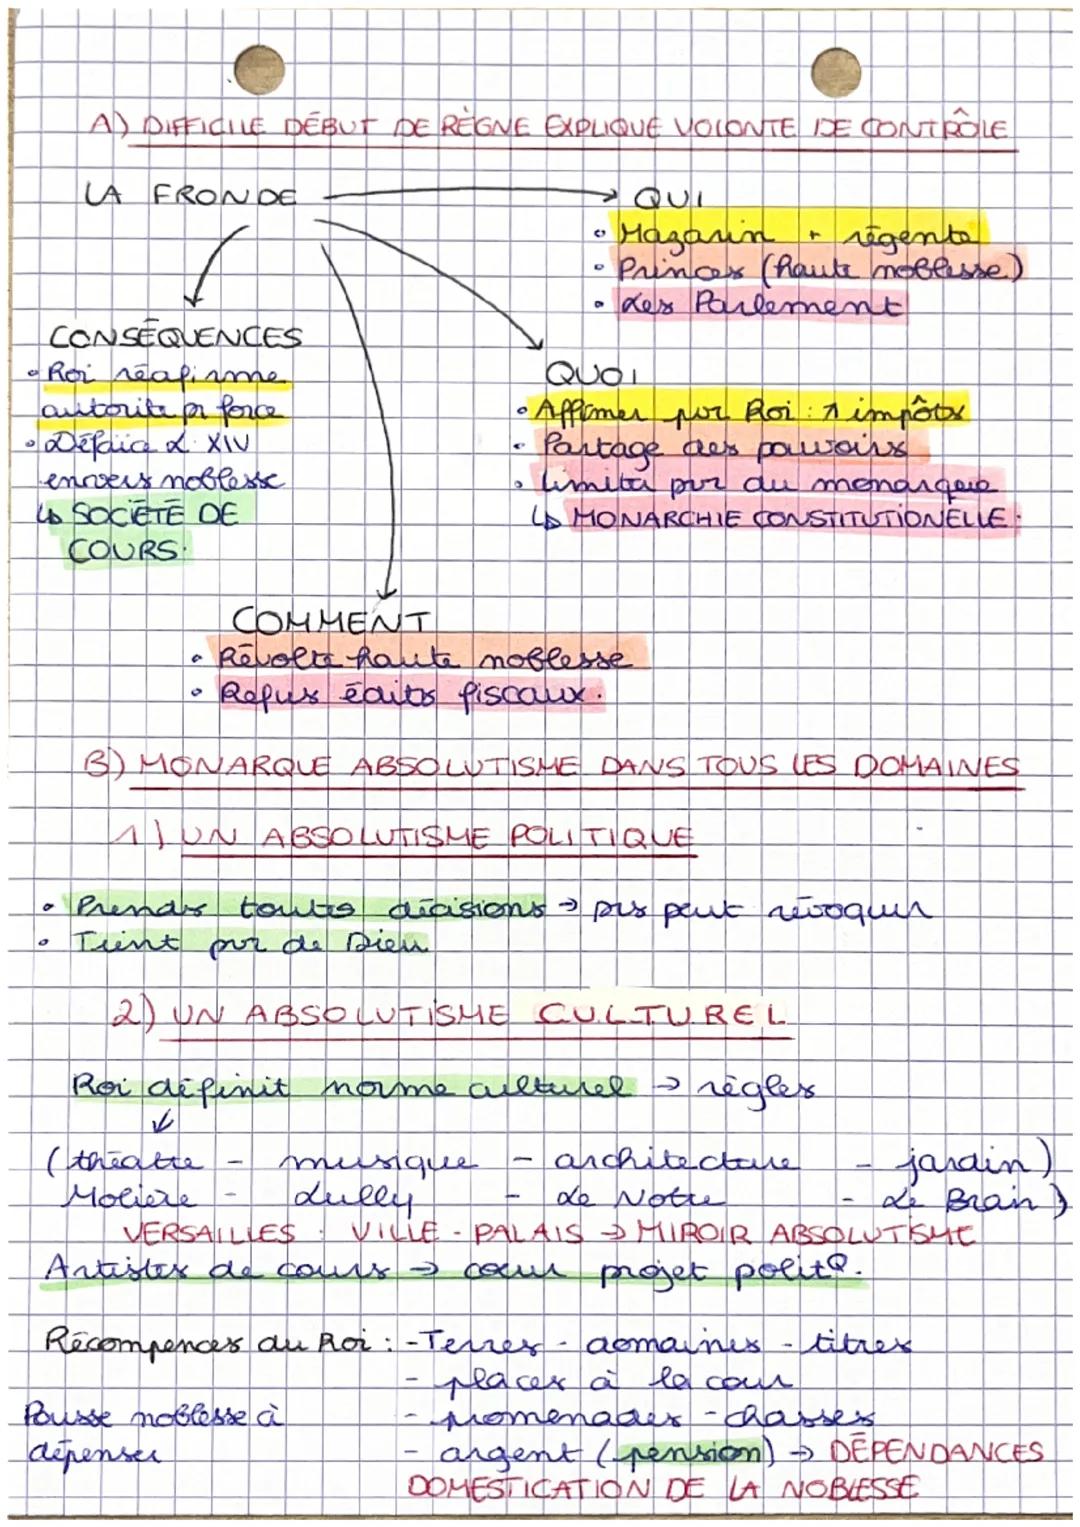 A) DIFFICILE DÉBUT DE RÈGNE EXPLIQUE VOLONTE DE CONTRÔLE
LA FRONDE → QUI
• Mazarin + régente
• Princes (haute noblesse)
• Les Parlement
CONSÉQUENCES
• Roi réafirme
autorite pr force
• Défaice L. XIV
envers noblesse
↳ SOCIÉTÉ DE
COURS.
QUOI
• Affirmer pvr Roi : ↗ impôts
• Partage des pouvoirs
• limiter pvr du monarque
↳ MONARCHIE CONSTITUTIONELLE.
COMMENT
• Révolte haute noblesse
• Refus édits fiscaux.
B) MONARQUE ABSOLUTISME DANS TOUS LES DOMAINES
1) UN ABSOLUTISME POLITIQUE
• Prends toutes décisions → pvs peut révoquer
• Tient pvr de Dieu
2) UN ABSOLUTISME CULTUREL
Roi définit norme culturel → règles
↓
(théatre - musique - architecture - jardin)
Molière - Lully - Le Notre - Le Bran)
VERSAILLES : VILLE - PALAIS → MIROIR ABSOLUTISME
Artistes de cours → cœur projet politQ.
Récompences du Roi : - Terres - domaines - titres
- places à la cour
Pousse noblesse à - promenades - chasses
dépenser - argent (pension) → DÉPENDANCES
DOMESTICATION DE LA NOBLESSE